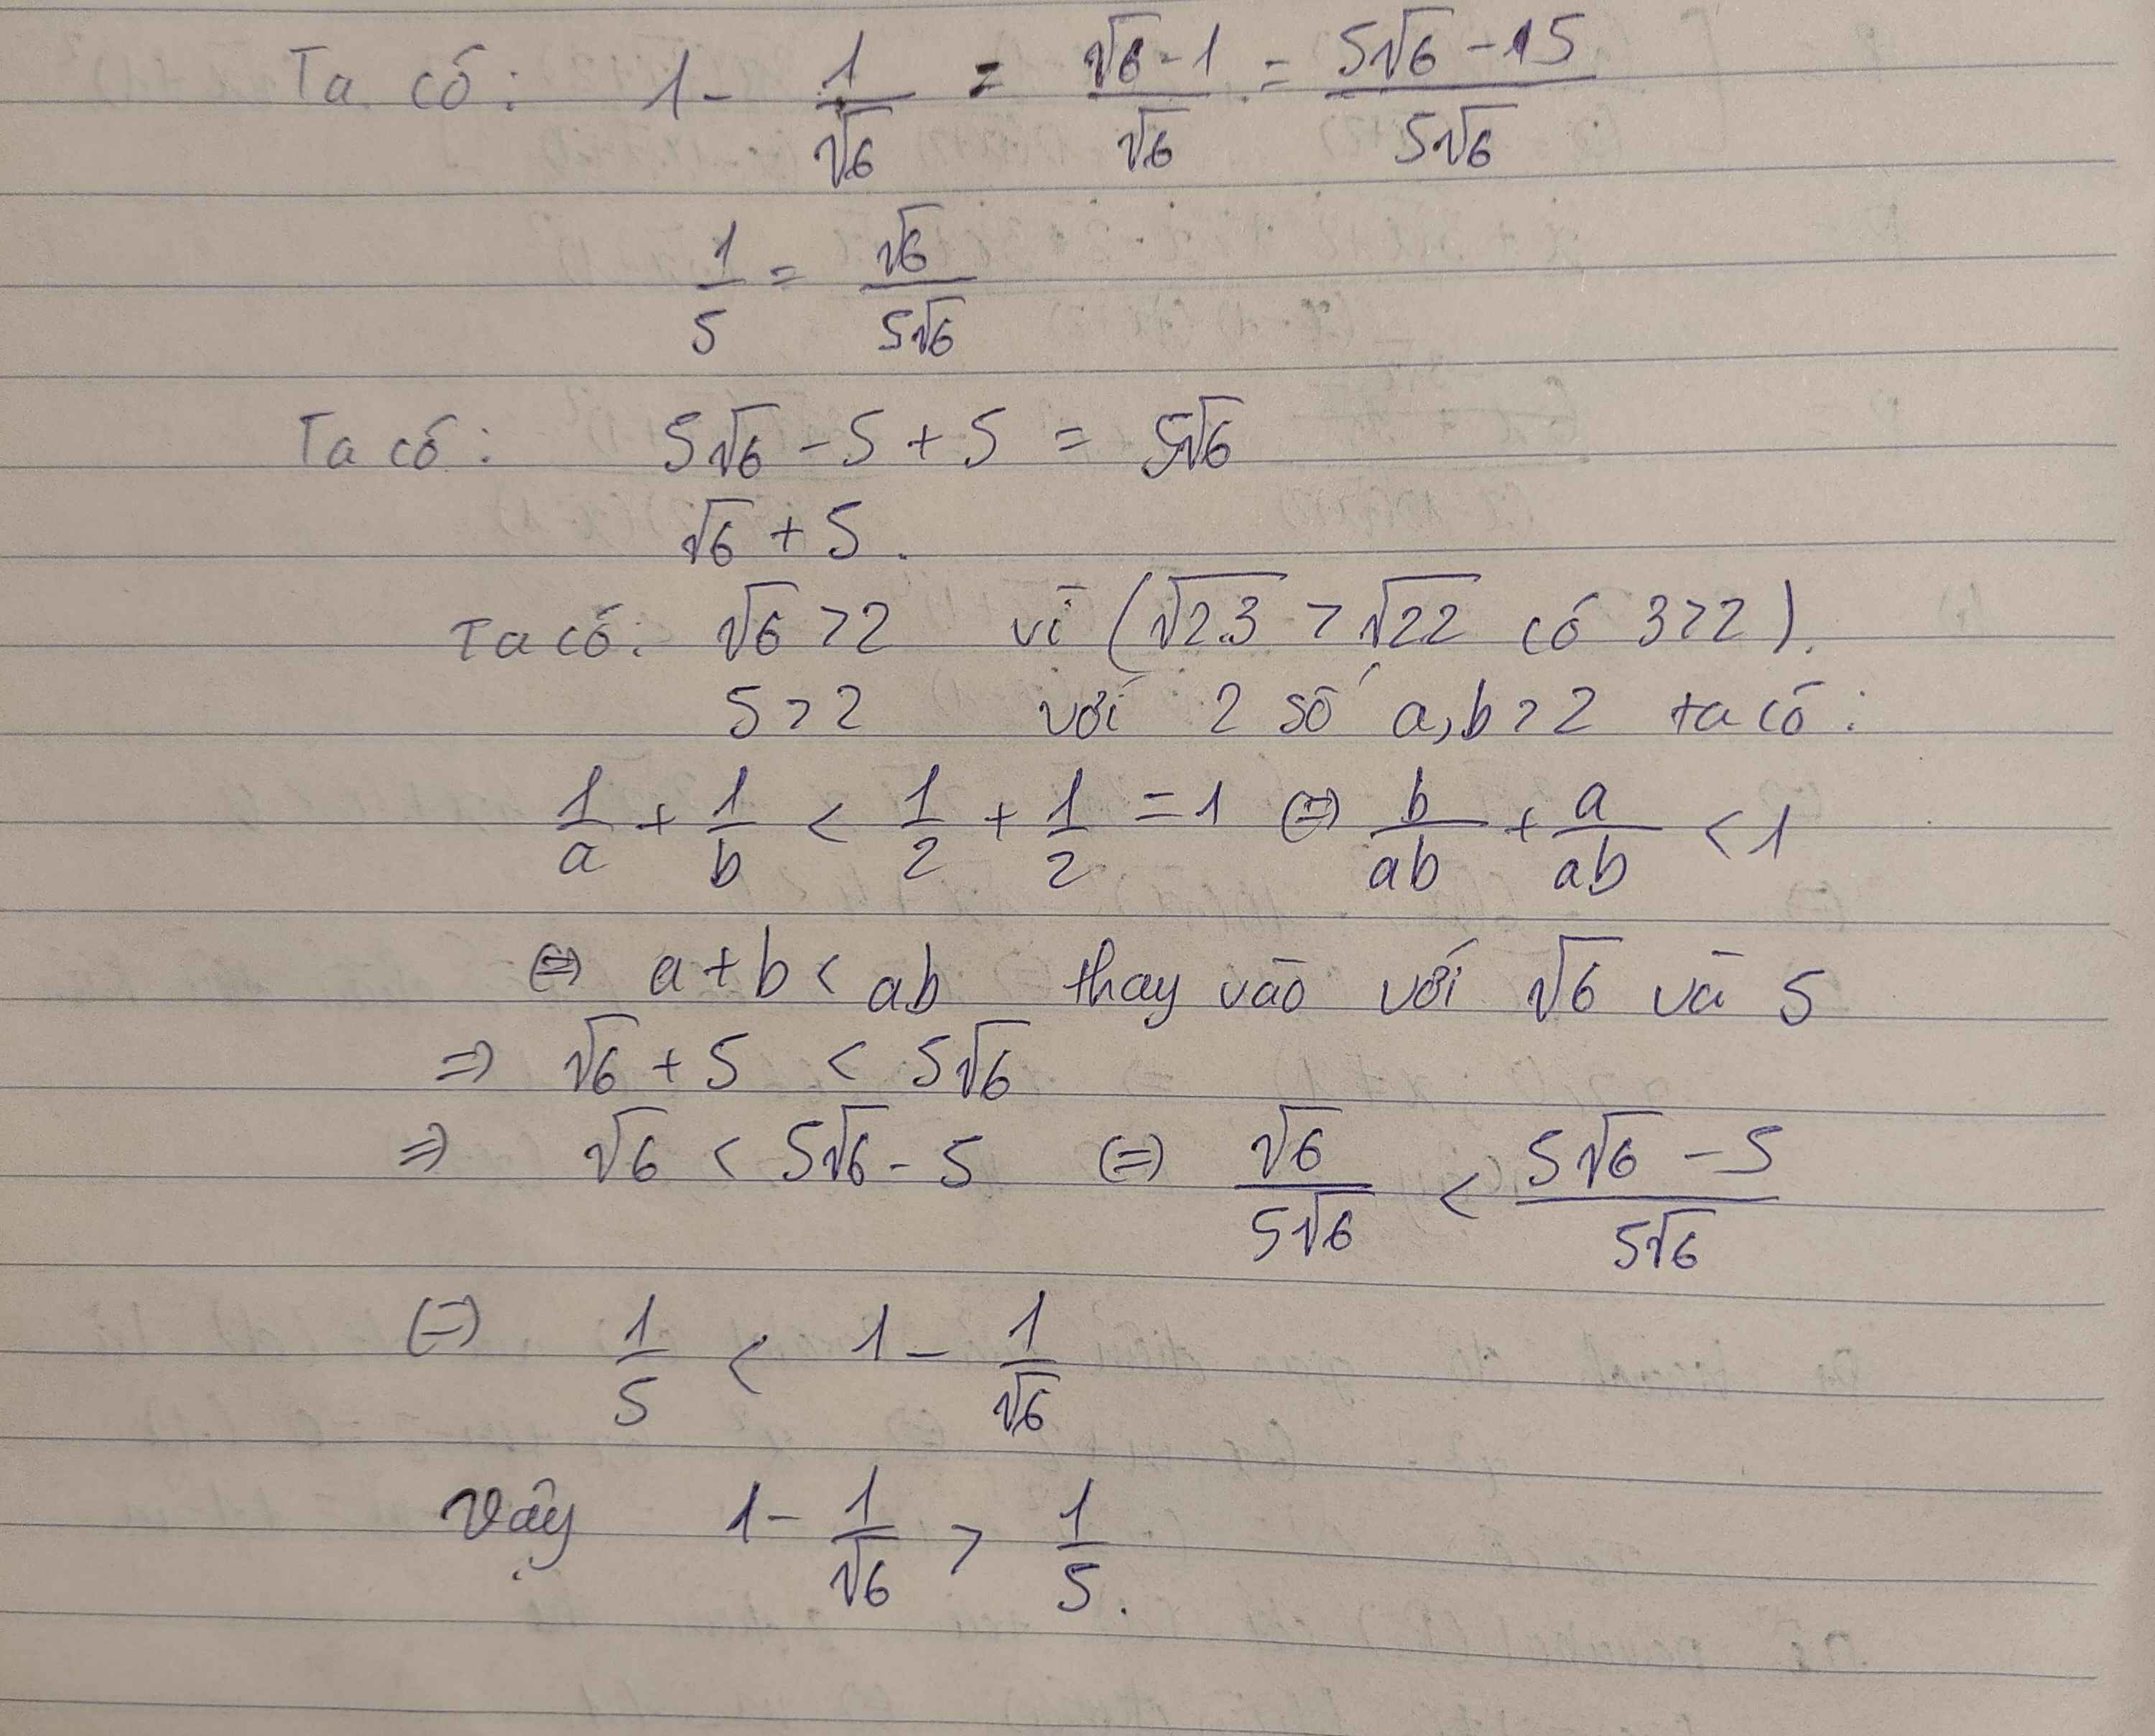 Ta có: 1 - 1/√6 = (√6 - 1)/√6 = (5√6 - 15)/(5√6)
1/5 = √6/(5√6)
Ta có: 5√6 - 5 + 5 = 5√6
√6 + 5.
Ta có: √6 > 2 vì (√2.3 > √22 có 3>2).
5 > 2 với 2 số a,b > 2 ta có:
1/a + 1/b < 1/2 + 1/2 = 1 (=) b/ab + a/ab < 1
(=) a + b < ab thay vào với √6 và 5
=> √6 + 5 < 5√6
=> √6 < 5√6 - 5 (=) √6/(5√6) < (5√6 - 5)/(5√6)
(=) 1/5 < 1 - 1/√6
Vậy 1 - 1/√6 > 1/5.